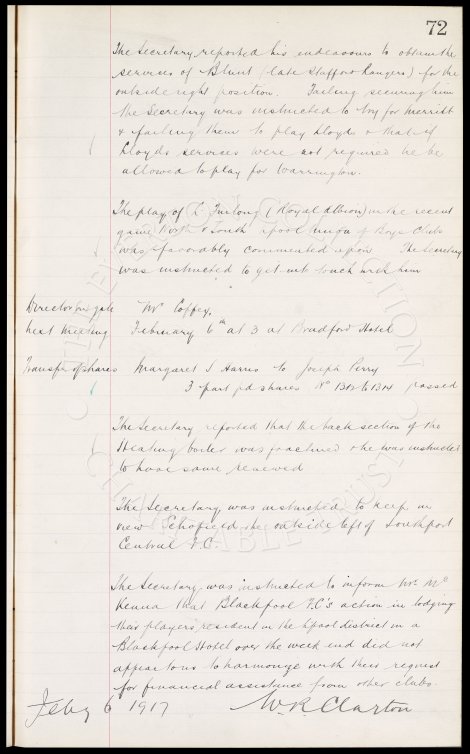 72
The Secretary reported his endeavours to obtain the
services of Blunt (late Stafford Rangers) for the
outside right position. Failing securing him
the Secretary was instructed to try for Merritt
& failing them to play Lloyds & that if
Lloyds services were not required he be
allowed to play for Warrington.
The play of L Furlong (Royal Albion) in the recent
game North v South Lpool Union of Boys Clubs
was favorably commented upon The Secretary
was instructed to get into touch with him
Director for gate Mr Coffey,
Next Meeting February 6th at 3 at Bradford Hotel
Transfer of shares Margaret S Harris to Joseph Perry
3 part pd shares No 1312 to 1314 passed
The Secretary reported that the back section of the
Heating boiler was fractured & he was instructed
to have same renewed
The Secretary was instructed to keep in
view Schofield the outside left of Southport
Central F.C.
The Secretary was instructed to inform Mr Mc
Kenna that Blackpool F.C's action in lodging
their players resident in the Lpool district in a
Blackpool Hotel over the week end did not
appear to us to harmonize with their request
for financial assistance from other clubs.
Feby 6 1917 W.R. Clayton